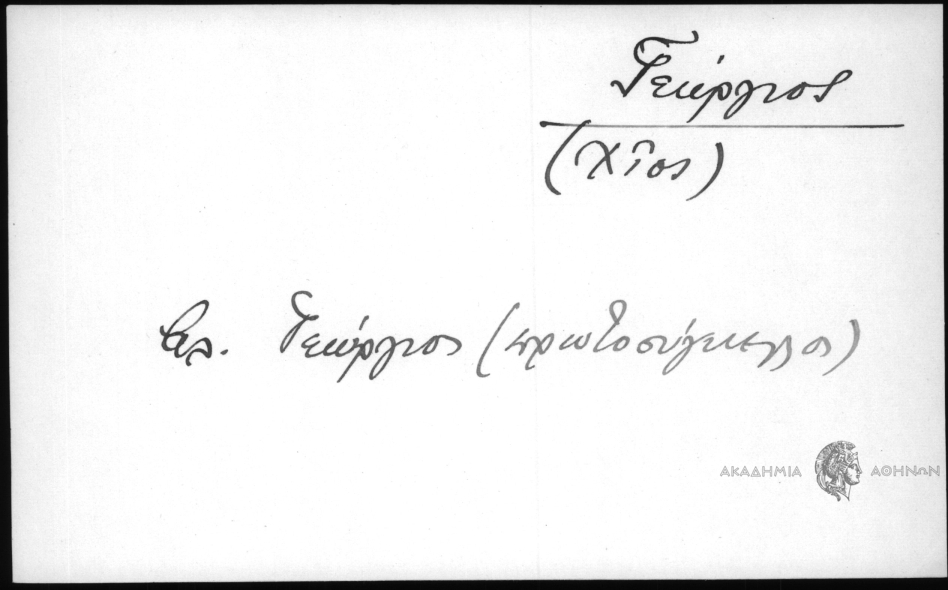 Γεώργιος
(Χῖος)
βλ. Γεώργιος (πρωτοσύγκελλος)
ΑΚΑΔΗΜΙΑ ΑΘΗΝΩΝ